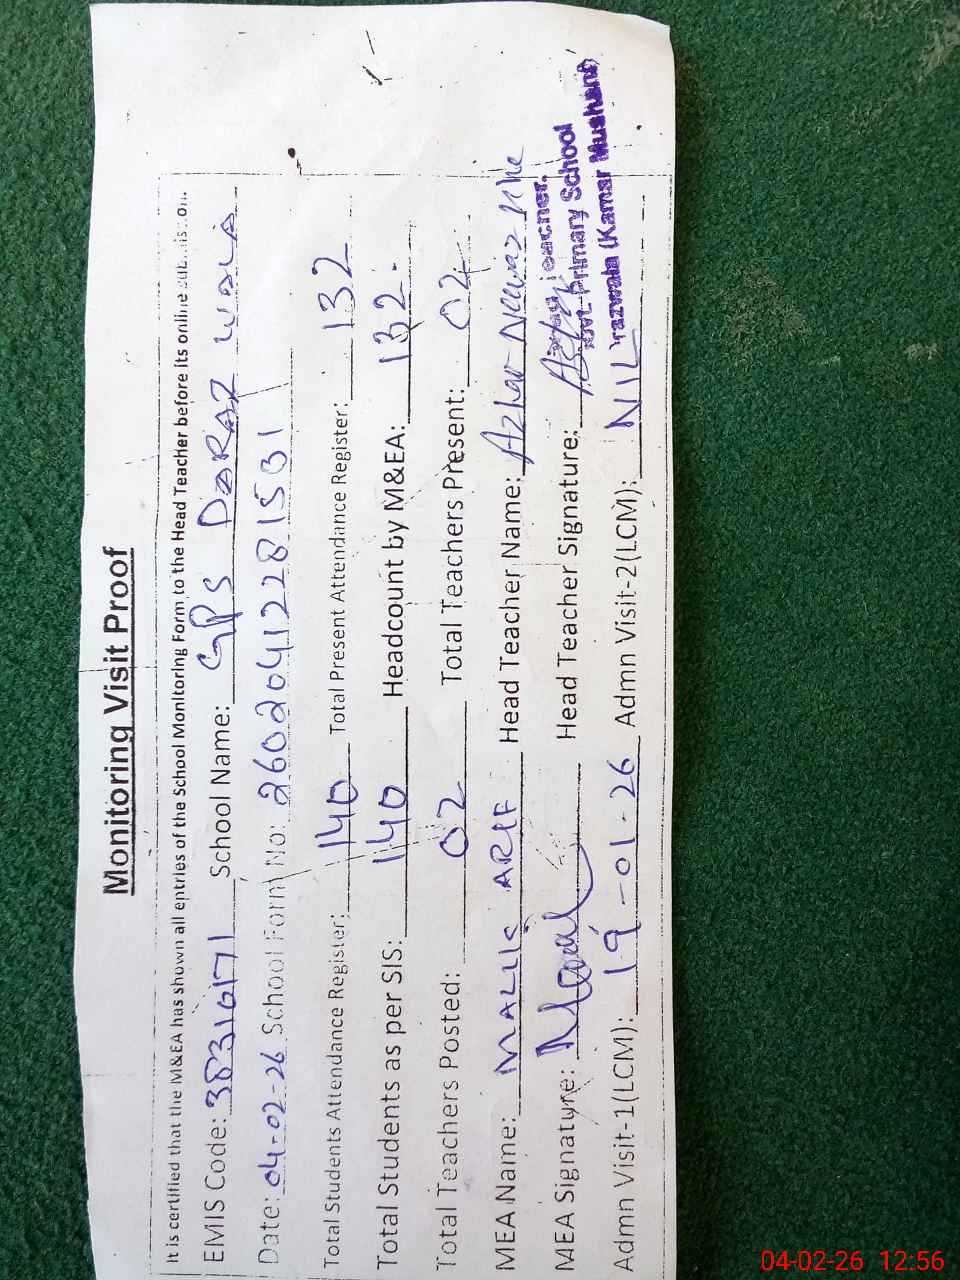 Monitoring Visit Proof
It is certified that the M&EA has shown all entries of the School Monitoring Form to the Head Teacher before its online
EMIS Code: 38310171 School Name: GPS DARAZ WALA
Date: 04-02-26 School Form No: 26020412281531
Total Students Attendance Register: 140 Total Present Attendance Register: 132
Total Students as per SIS: 140 Headcount by M&EA: 132
Total Teachers Posted: 02 Total Teachers Present: 02
MEA Name: MALIK ARIF Head Teacher Name: Azhar Nawaz
MEA Signature: Head Teacher Signature:
Teacher,
Govt. Primary School
razwala (Kamar Mushani)
Admn Visit-1(LCM): 19-01-26 Admn Visit-2(LCM): NIL
04-02-26 12:56